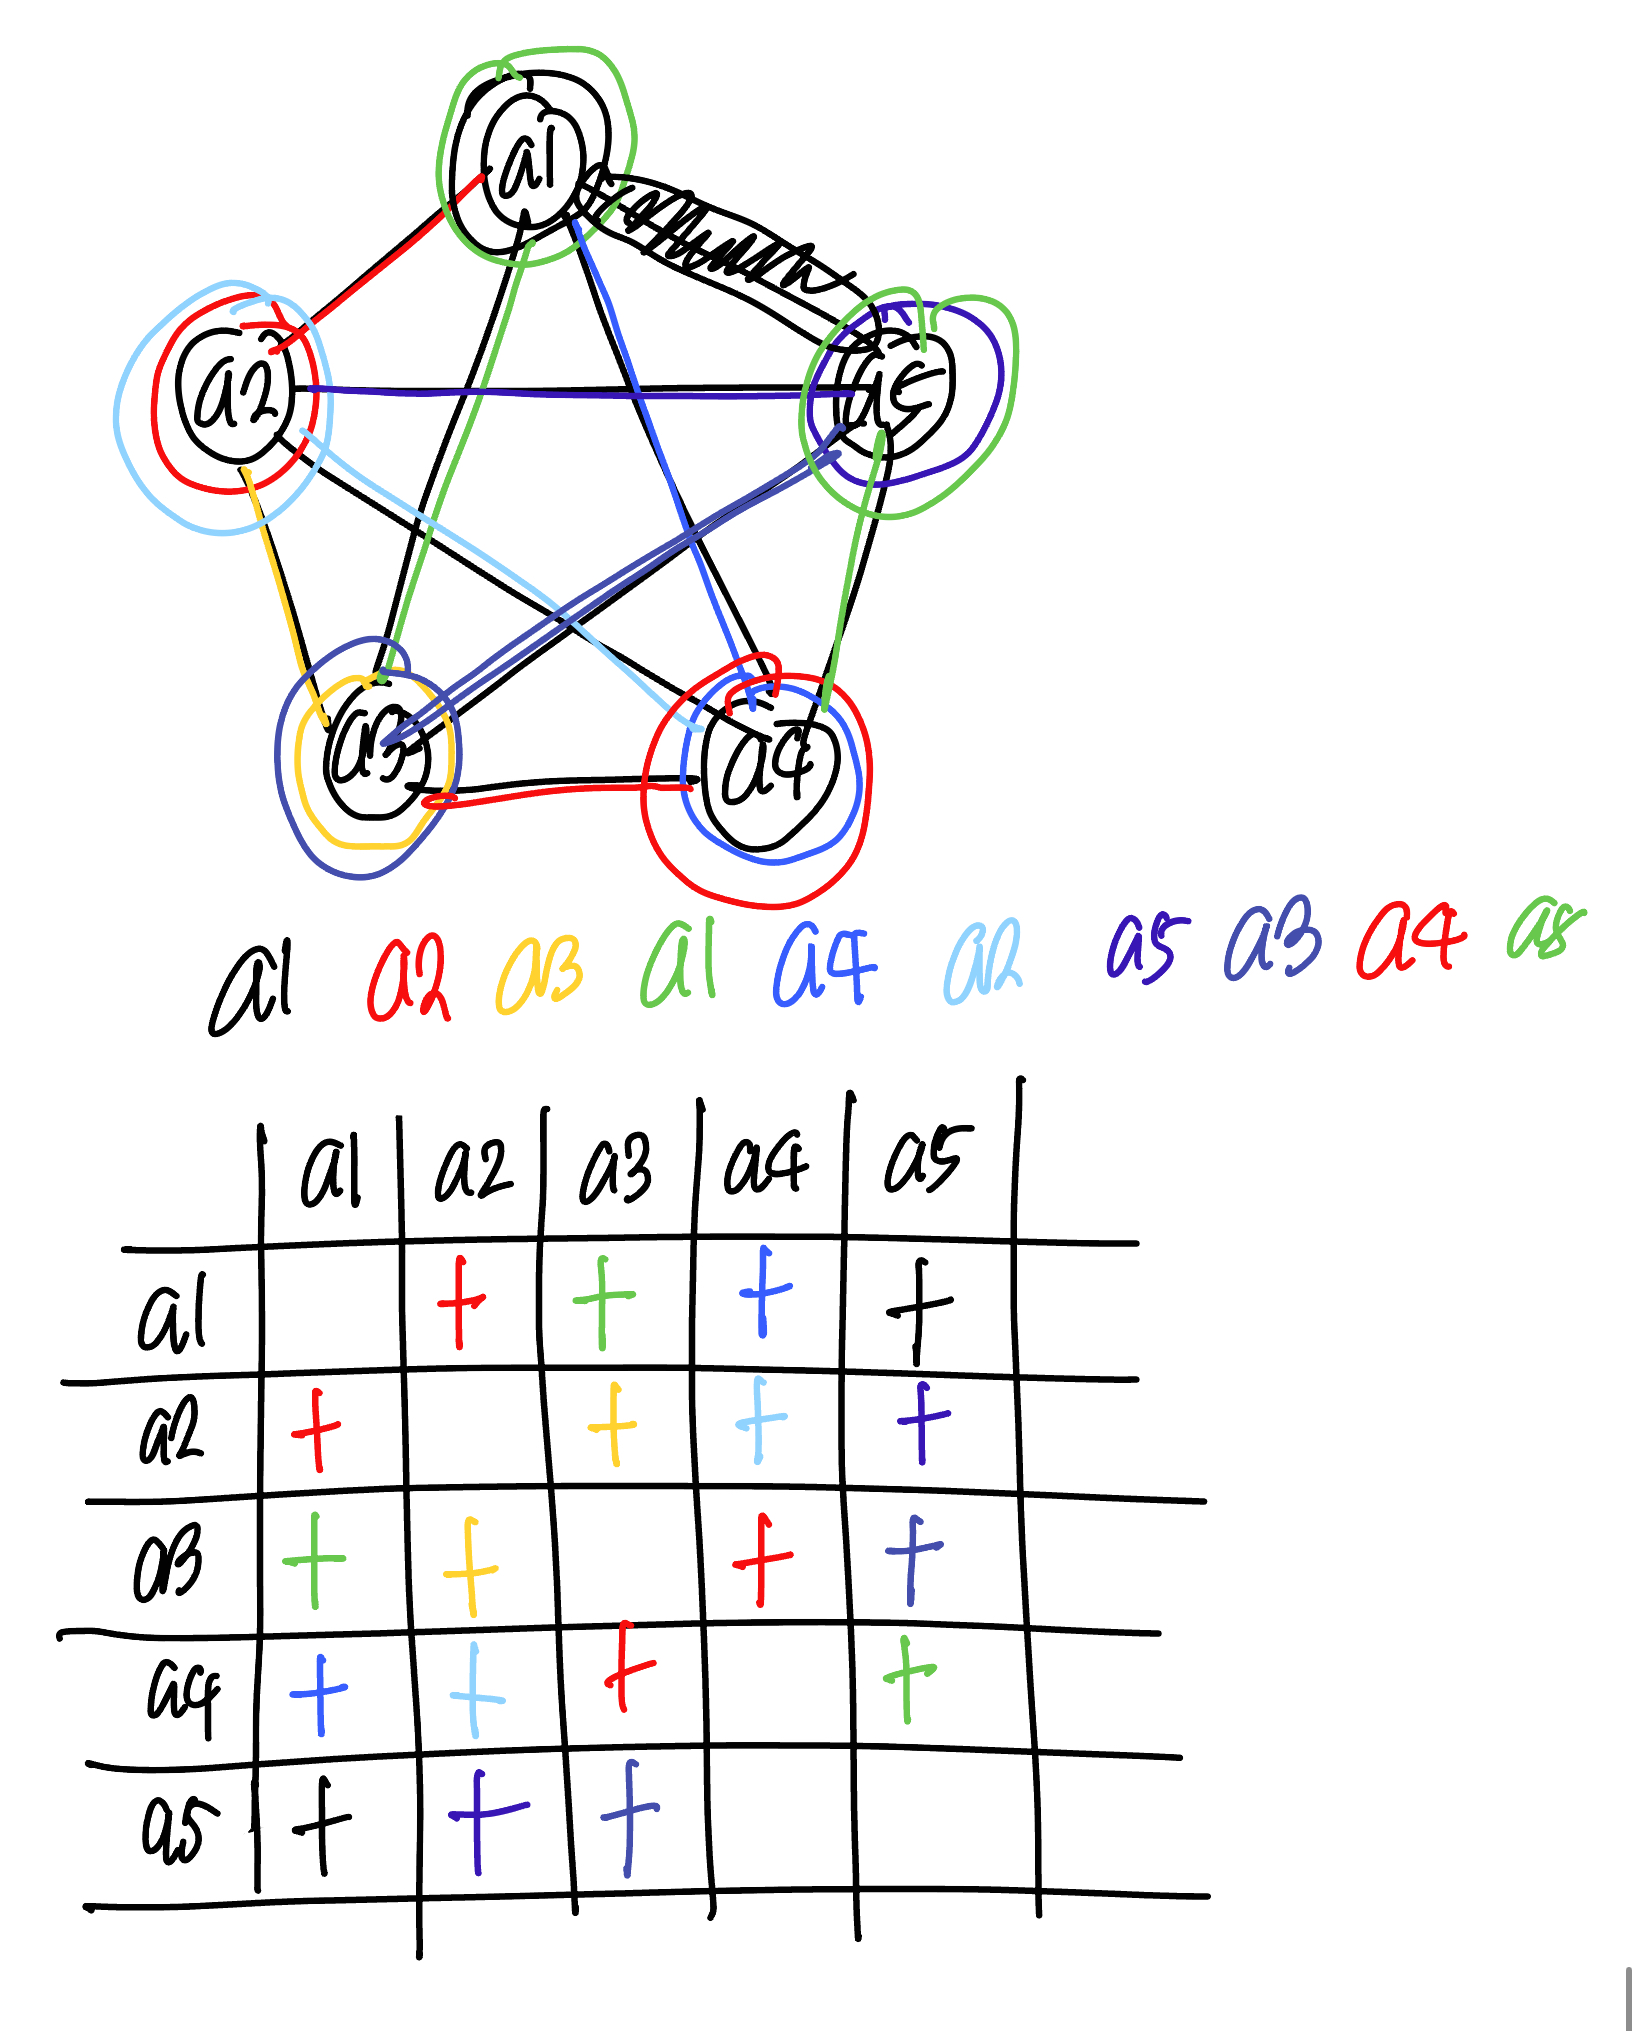 a1
a2 a5
a3 a4
a1 a2 a3 a1 a4 a2 a5 a3 a4 a5
a1 a2 a3 a4 a5
a1 + + + +
a2 + + + +
a3 + + + +
a4 + + + +
a5 + + +